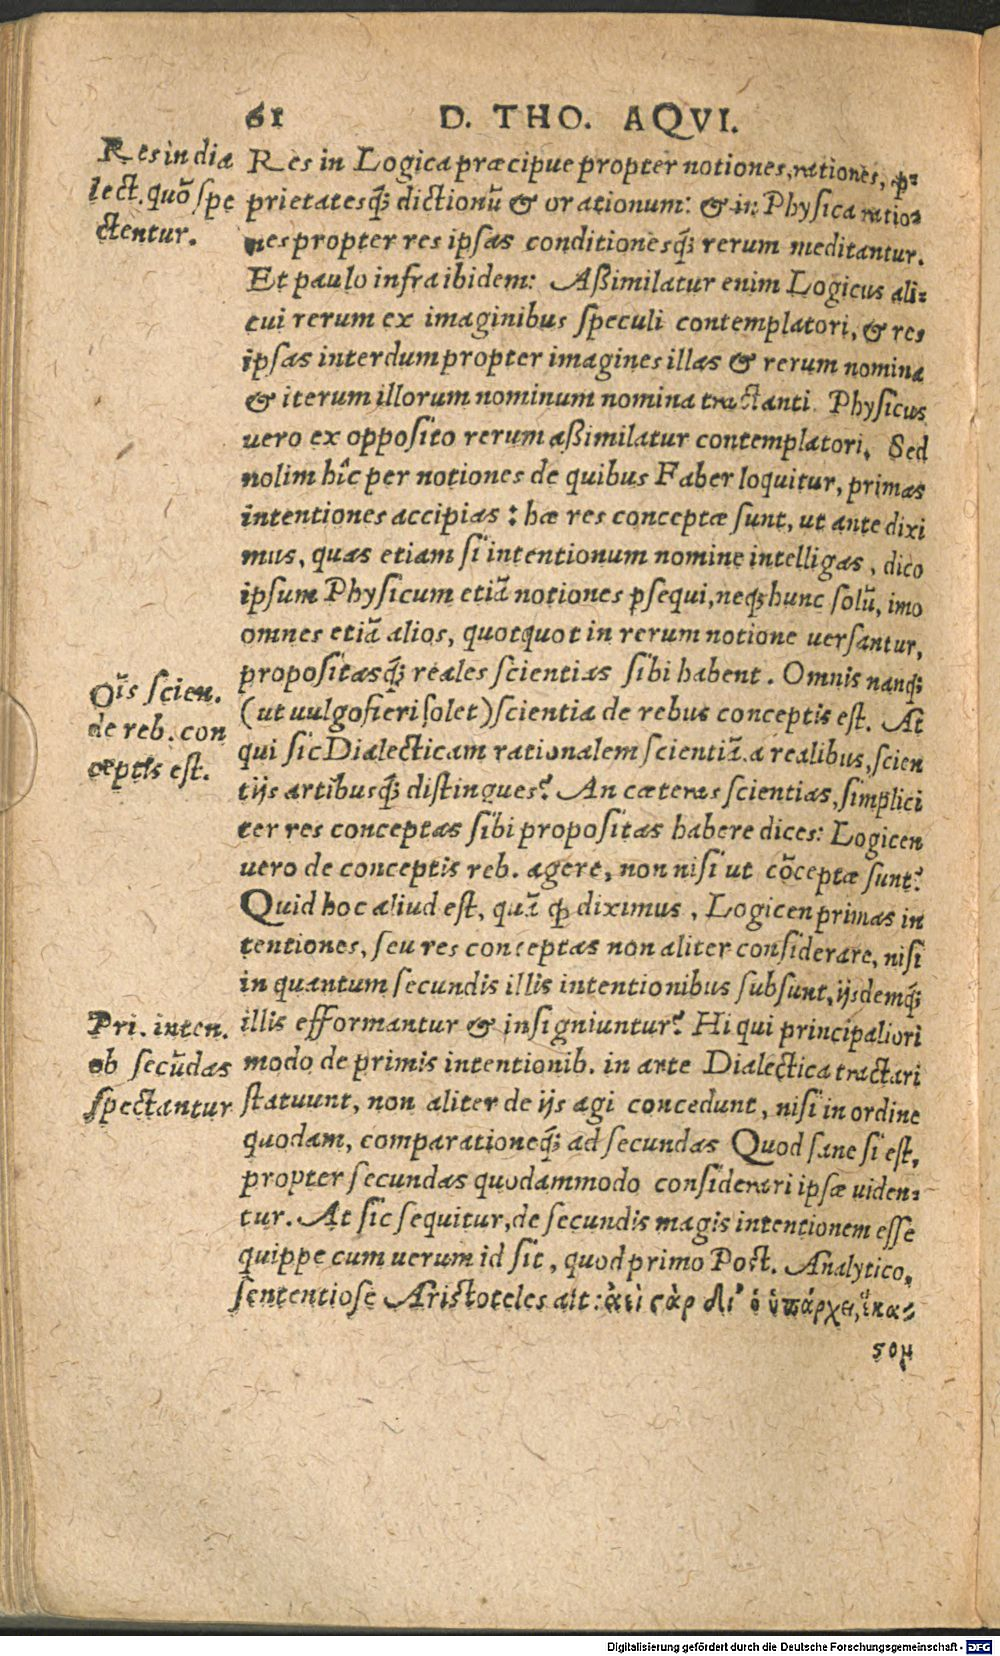 61 D. THO. AQVI.
Res in dia
lect. quõ spe
ctentur.
Res in Logica præcipue propter notiones, rationes, ꝓ-
prietatesq́; dictionũ & orationum: & in Physica ratio-
nes propter res ipsas conditionesq́; rerum meditantur.
Et paulo infra ibidem: Aßimilatur enim Logicus ali-
cui rerum ex imaginibus speculi contemplatori, & res
ipsas interdum propter imagines illas & rerum nomina
& iterum illorum nominum nomina tractanti. Physicus
uero ex opposito rerum aßimilatur contemplatori. Sed
nolim hîc per notiones de quibus Faber loquitur, primas
intentiones accipias: hæ res conceptæ sunt, ut ante dixi
mus, quas etiam si intentionum nomine intelligas, dico
ipsum Physicum etiã notiones ꝑsequi, neq; hunc solũ, imo
omnes etiã alios, quotquot in rerum notione uersantur,
propositasq́; reales scientias sibi habent. Omnis nanq;
Oĩs scien.
de reb. con
ceptis est.
(ut uulgo fieri solet) scientia de rebus conceptis est. At
qui sic Dialecticam rationalem scientiã, a realibus, scien
tijs artibusq́; distingues? An cæteras scientias, simplici
ter res conceptas sibi propositas habere dices: Logicen
uero de conceptis reb. agere, non nisi ut cõceptæ sunt?
Quid hoc aliud est, quã ꝙ diximus, Logicen primas in
tentiones, seu res conceptas non aliter considerare, nisi
in quantum secundis illis intentionibus subsunt, ijsdemq́;
Pri. inten.
ob secũdas
spectantur
illis efformantur & insigniuntur? Hi qui principaliori
modo de primis intentionib. in arte Dialectica tractari
statuunt, non aliter de ijs agi concedunt, nisi in ordine
quodam, comparationeq́; ad secundas Quod sane si est,
propter secundas quodammodo considerari ipsæ uiden-
tur. At sic sequitur, de secundis magis intentionem esse
quippe cum uerum id sit, quod primo Post. Analytico.
sententiose Aristoteles ait: ἀεὶ γὰρ δι’ ὃ ὑπάρχει, ἕκα-
ϛομ